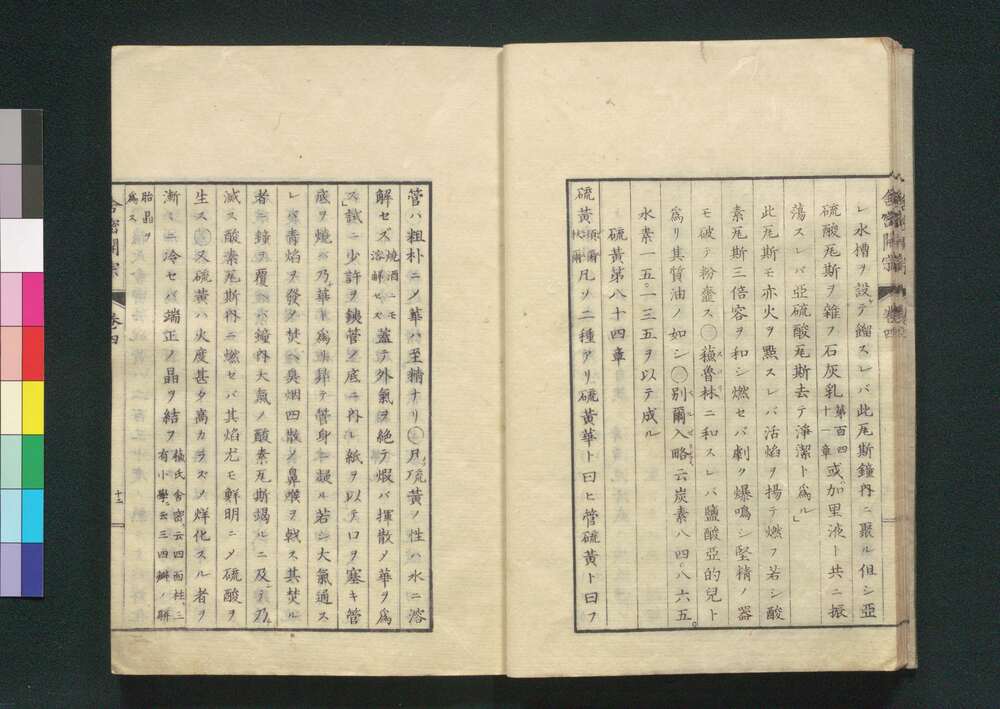 レ水槽ヲ設テ餾スレバ此瓦斯鐘內ニ聚ル但シ亞
硫酸瓦斯ヲ雜フ石灰乳第百四十一章或加里液ト共ニ振
蕩スレバ亞硫酸瓦斯去テ淨潔ト爲ル」
此瓦斯モ亦火ヲ點スレバ活焰ヲ揚テ燃フ若シ酸
素瓦斯三倍容ヲ和シ燃セバ劇ク爆鳴シ堅精ノ器
モ破テ粉韲ス○稬魯林ニ和スレバ鹽酸亞的兒ト
爲リ其質油ノ如シ○別爾入略云炭素八四。八六五。
水素一五。一三五ヲ以テ成ル
硫黃第八十四章
硫黃凡ソ二種アリ硫黃華ト曰ヒ管硫黃ト曰フ
舍密開宗 卷四
管ハ粗朴ニノ華ハ至精ナリ○凡硫黃ノ性ハ水ニ溶
解セズ燒酒ニモ溶解セズ蓋テ外氣ヲ絶テ煆バ揮散メ華ヲ爲
ス」試ニ少許ヲ鐵管ノ底ニ內レ紙ヲ以テ口ヲ塞キ管
底ヲ燒バ乃華ト爲リ昇テ管身ニ凝ル若シ大氣通ス
レバ靑焰ヲ發ノ焚ヘ臭烟四散ノ鼻喉ヲ戟ス其焚ル
者ニ鐘ヲ覆ヘバ鐘內大氣ノ酸素瓦斯竭ルニ及テ乃
滅ス酸素瓦斯內ニ燃セバ其焰尤モ鮮明ニメ硫酸ヲ
生ス○又硫黃ハ火度甚タ高カラズノ烊化スル者ヲ
漸ニ冷セバ端正ノ晶ヲ結フ稬氏舍密ニ云四面柱、ニ有小學云三四辨ノ駢
胎晶ヲ爲ス
舍密開宗 卷四 十二